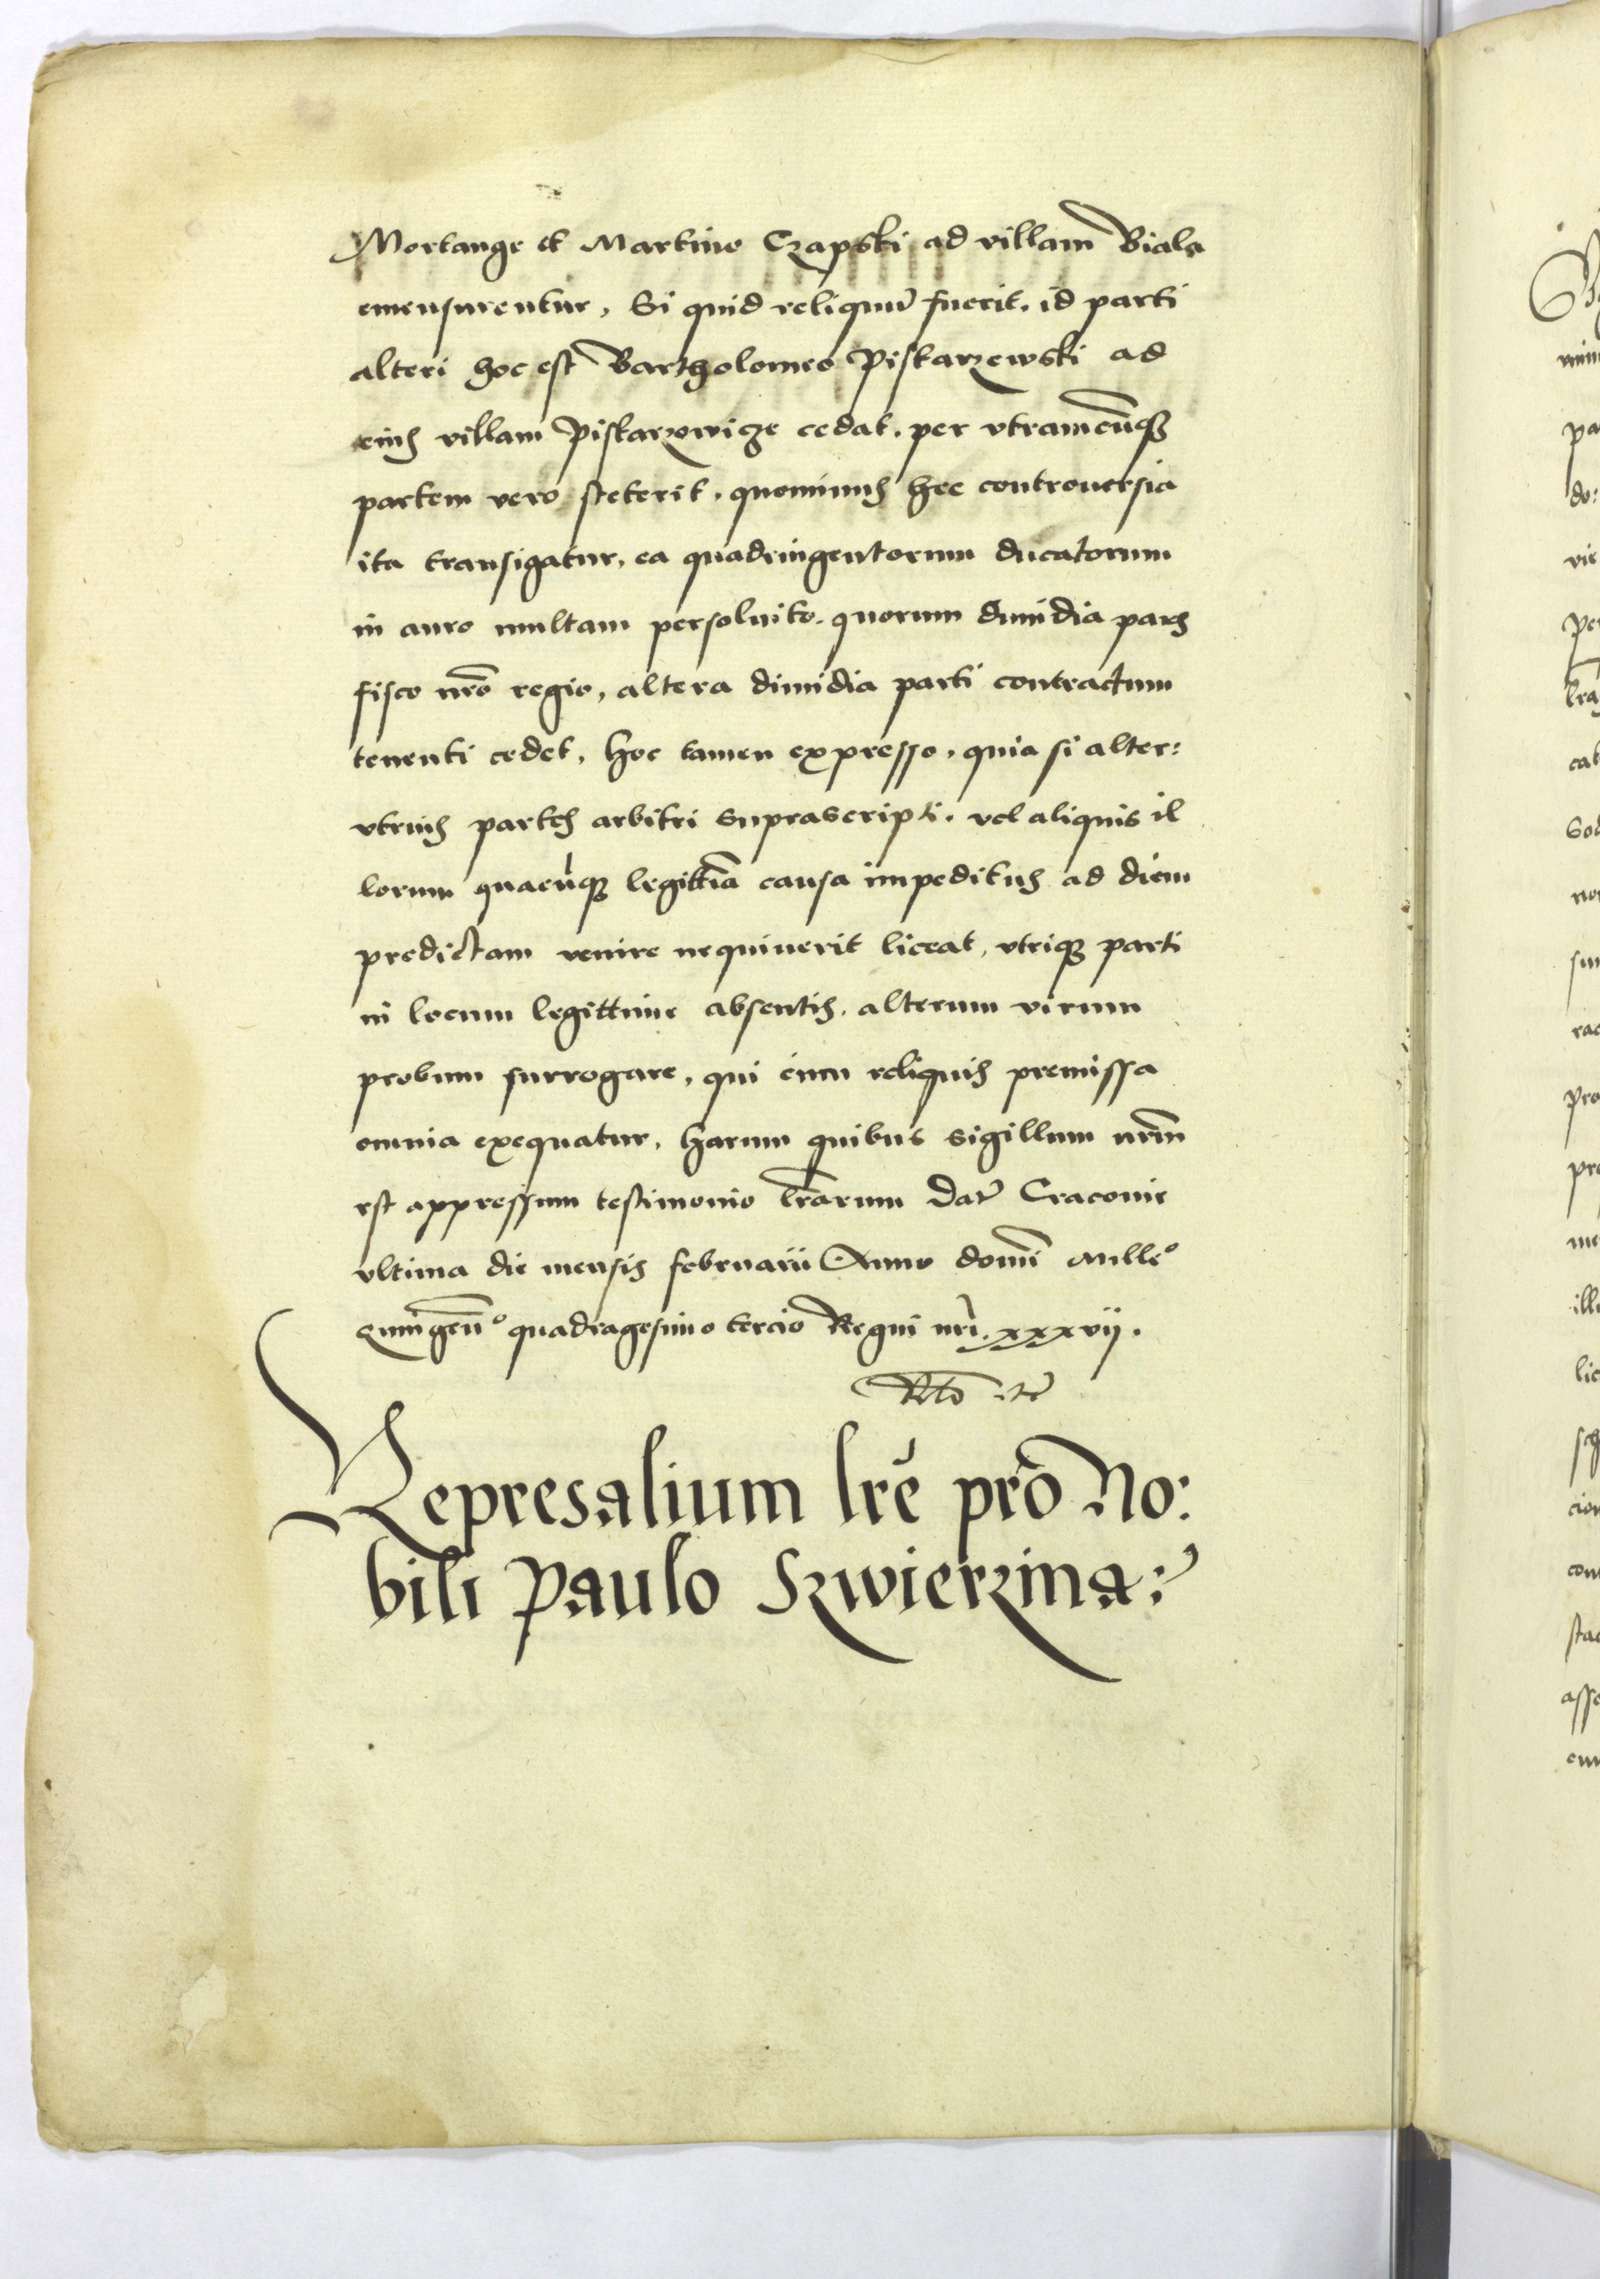 Mortange et Martino Czapski ad villam Biala
emensurentur, Si quid reliquũ fuerit, id parti
alteri hoc est Bartholomeo Piskarzewski ad
eius villam Piskarzowicze cedat, per vtramcũq̃
partem vero steterit, quominus hec controuersia
ita transigatur, ea quadringentorum ducatorum
in auro multam persoluito, quorum dimidia pars
fisco nrõ regio, altera dimidia parti contractum
tenenti cedet, hoc tamen expresso, quia si alter:
vtrius partis arbitri suprascripti, vel aliquis il
lorum quacũq̃ legittĩa causa impeditus ad diem
predictam venire nequiuerit liceat, vtriq̃ parti
in locum legittime absentis, alterum virum
probum surrogare, qui cum reliquis premissa
omnia exequatur, harum quibus sigillum nrm̃
est appressum testimonio lr̃arum Dat̃ Cracouie
vltima die mensis februarii Anno domĩ Mille°
Quingeñ° quadragesimo tercio Regni nrĩ xxxvij.
Represalium lrẽ pro No:
bili Paulo Szwierzina: